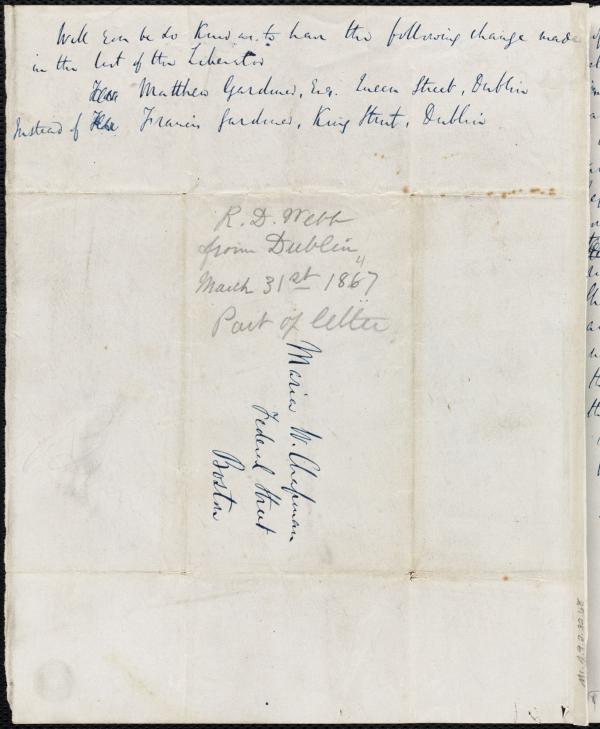 Will you be so kind as to have the following change made
in the list of the Liberator
Matthew Gardiner, Esq. Queen Street, Dublin
Instead of Francis Gardiner, King Street, Dublin
R. D. Webb
from Dublin
4
March 31st 1867
Part of letter
Maria W. Chapman
Federal Street
Boston